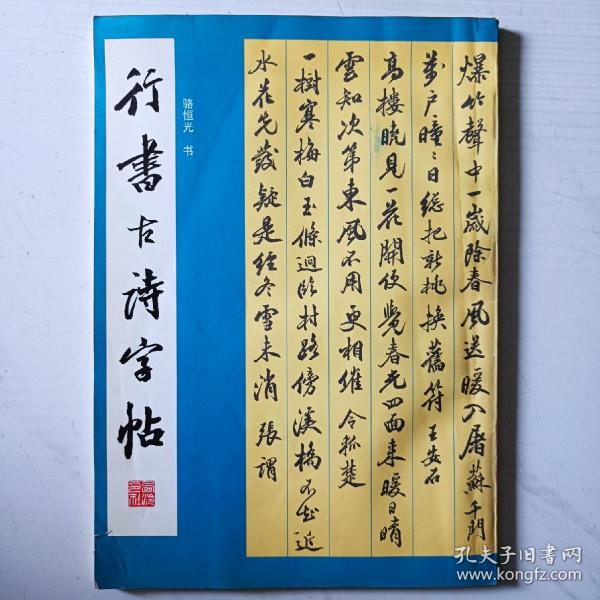 行書古诗字帖
骆恒光 书
爆竹聲中一歲除春風送暖入屠蘇千門
萬户曈〻日總把新桃換舊符 王安石
高樓曉見一花開便覺春光四面来暖日晴
雲知次第東風不用更相催 令狐楚
一樹寒梅白玉條迥臨村路傍溪橋不知近
水花先發疑是經冬雪未消 張謂
孔夫子旧书网
www.kongfz.com